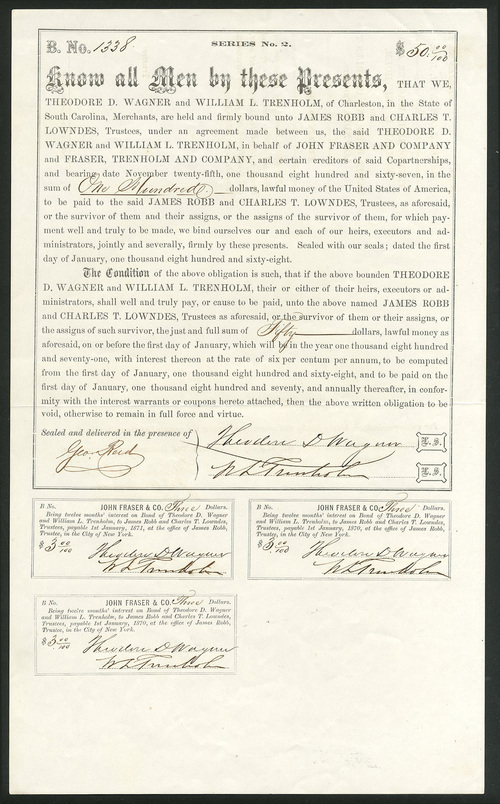 B. No. 1338
SERIES No. 2.
$50.00/100
Know all Men by these Presents, THAT WE,
THEODORE D. WAGNER and WILLIAM L. TRENHOLM, of Charleston, in the State of
South Carolina, Merchants, are held and firmly bound unto JAMES ROBB and CHARLES T.
LOWNDES, Trustees, under an agreement made between us, the said THEODORE D.
WAGNER and WILLIAM L. TRENHOLM, in behalf of JOHN FRASER AND COMPANY
and FRASER, TRENHOLM AND COMPANY, and certain creditors of said Copartnerships,
and bearing date November twenty-fifth, one thousand eight hundred and sixty-seven, in the
sum of One Hundred dollars, lawful money of the United States of America,
to be paid to the said JAMES ROBB and CHARLES T. LOWNDES, Trustees, as aforesaid,
or the survivor of them and their assigns, or the assigns of the survivor of them, for which pay-
ment well and truly to be made, we bind ourselves our and each of our heirs, executors and ad-
ministrators, jointly and severally, firmly by these presents. Sealed with our seals; dated the first
day of January, one thousand eight hundred and sixty-eight.
The Condition of the above obligation is such, that if the above bounden THEODORE
D. WAGNER and WILLIAM L. TRENHOLM, their or either of their heirs, executors or ad-
ministrators, shall well and truly pay, or cause to be paid, unto the above named JAMES ROBB
and CHARLES T. LOWNDES, Trustees as aforesaid, or the survivor of them or their assigns, or
the assigns of such survivor, the just and full sum of Fifty dollars, lawful money as
aforesaid, on or before the first day of January, which will be in the year one thousand eight hundred
and seventy-one, with interest thereon at the rate of six per centum per annum, to be computed
from the first day of January, one thousand eight hundred and sixty-eight, and to be paid on the
first day of January, one thousand eight hundred and seventy, and annually thereafter, in confor-
mity with the interest warrants or coupons hereto attached, then the above written obligation to be
void, otherwise to remain in full force and virtue.
Sealed and delivered in the presence of
Geo. Reid
Theodore D Wagner L.S.
W L Trenholm L.S.
B No. JOHN FRASER & CO. Three Dollars.
Being twelve months' interest on Bond of Theodore D. Wagner
and William L. Trenholm, to James Robb and Charles T. Lowndes,
Trustees, payable 1st January, 1871, at the office of James Robb,
Trustee, in the City of New York.
$3 00/100 Theodore D Wagner
W L Trenholm
B No. JOHN FRASER & CO. Three Dollars.
Being twelve months' interest on Bond of Theodore D. Wagner
and William L. Trenholm, to James Robb and Charles T. Lowndes,
Trustees, payable 1st January, 1870, at the office of James Robb,
Trustee, in the City of New York.
$3 00/100 Theodore D Wagner
W L Trenholm
B No. JOHN FRASER & CO. Three Dollars.
Being twelve months' interest on Bond of Theodore D. Wagner
and William L. Trenholm, to James Robb and Charles T. Lowndes,
Trustees, payable 1st January, 1870, at the office of James Robb,
Trustee, in the City of New York.
$3 00/100 Theodore D Wagner
W L Trenholm